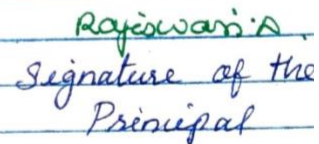 Rajeswari.A
Signature of the
Principal